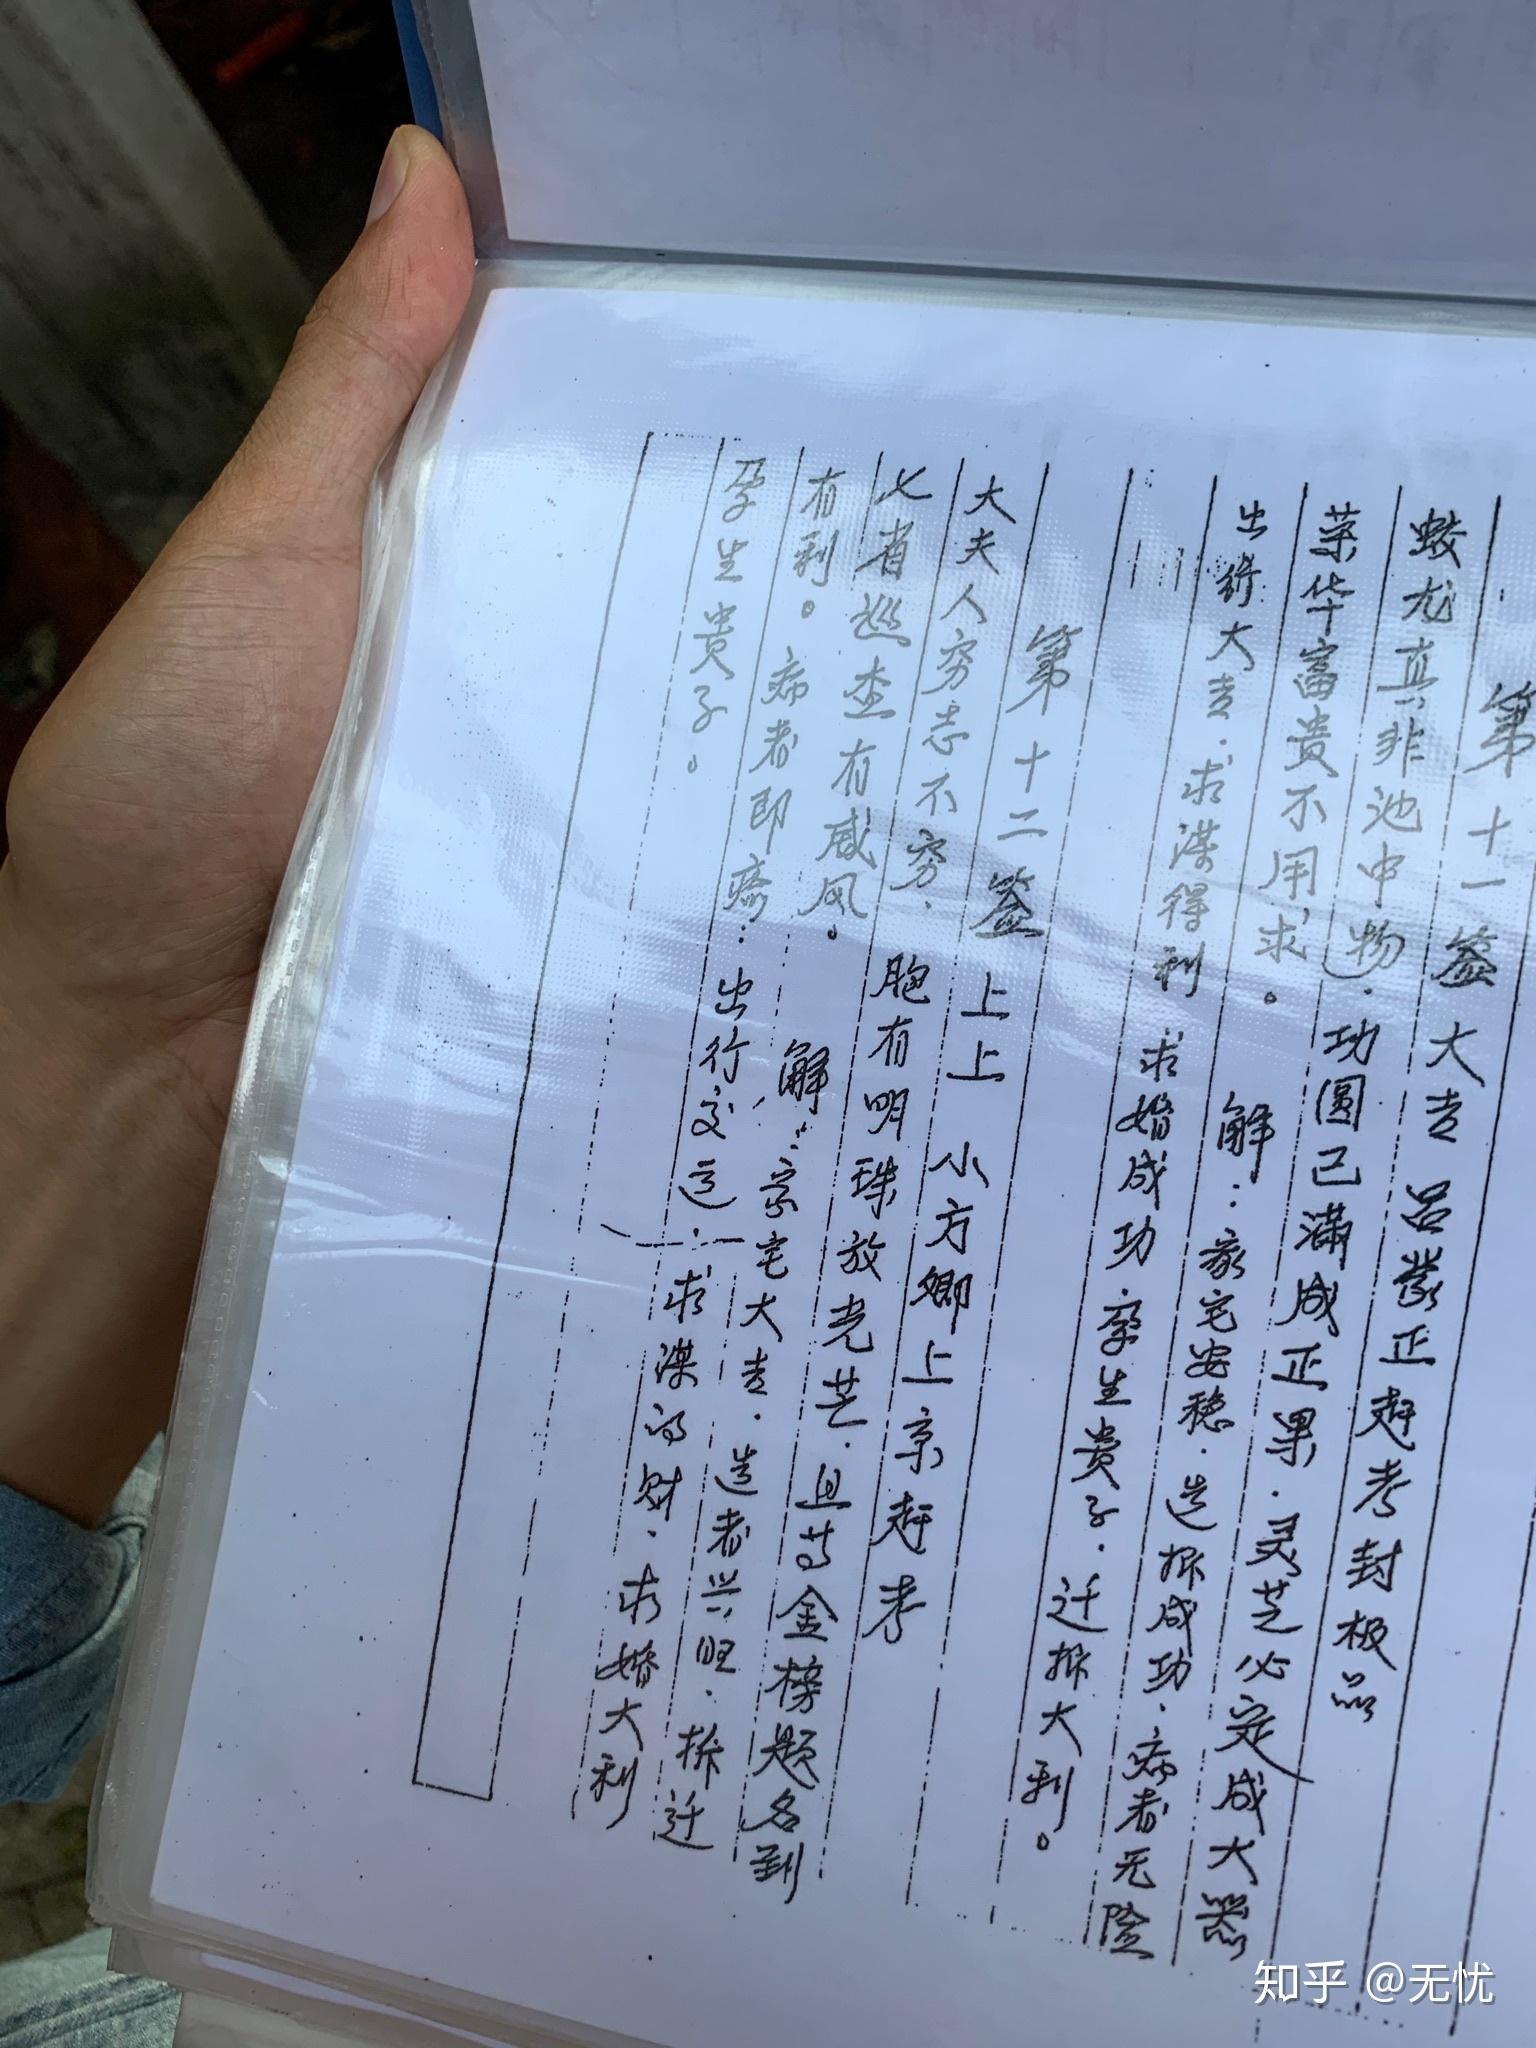 第十一签 大吉 吕蒙正赶考封极品
蛟龙真非池中物. 功圆已满成正果. 灵芝必定成大器
荣华富贵不用求。 解: 家宅安稳. 造拆成功. 病者无险
出行大吉. 求谋得利 求婚成功. 孕生贵子. 迁拆大利。
第十二签 上上 小方卿上京赶考
大夫人穷志不穷. 胞有明珠放光芒. 且等金榜题名到
七省巡查有威风。 解: 家宅大吉. 造者兴旺. 拆迁
有利。病者即痊: 出行交运. 求谋得财. 求婚大利
孕生贵子。
知乎 @无忧